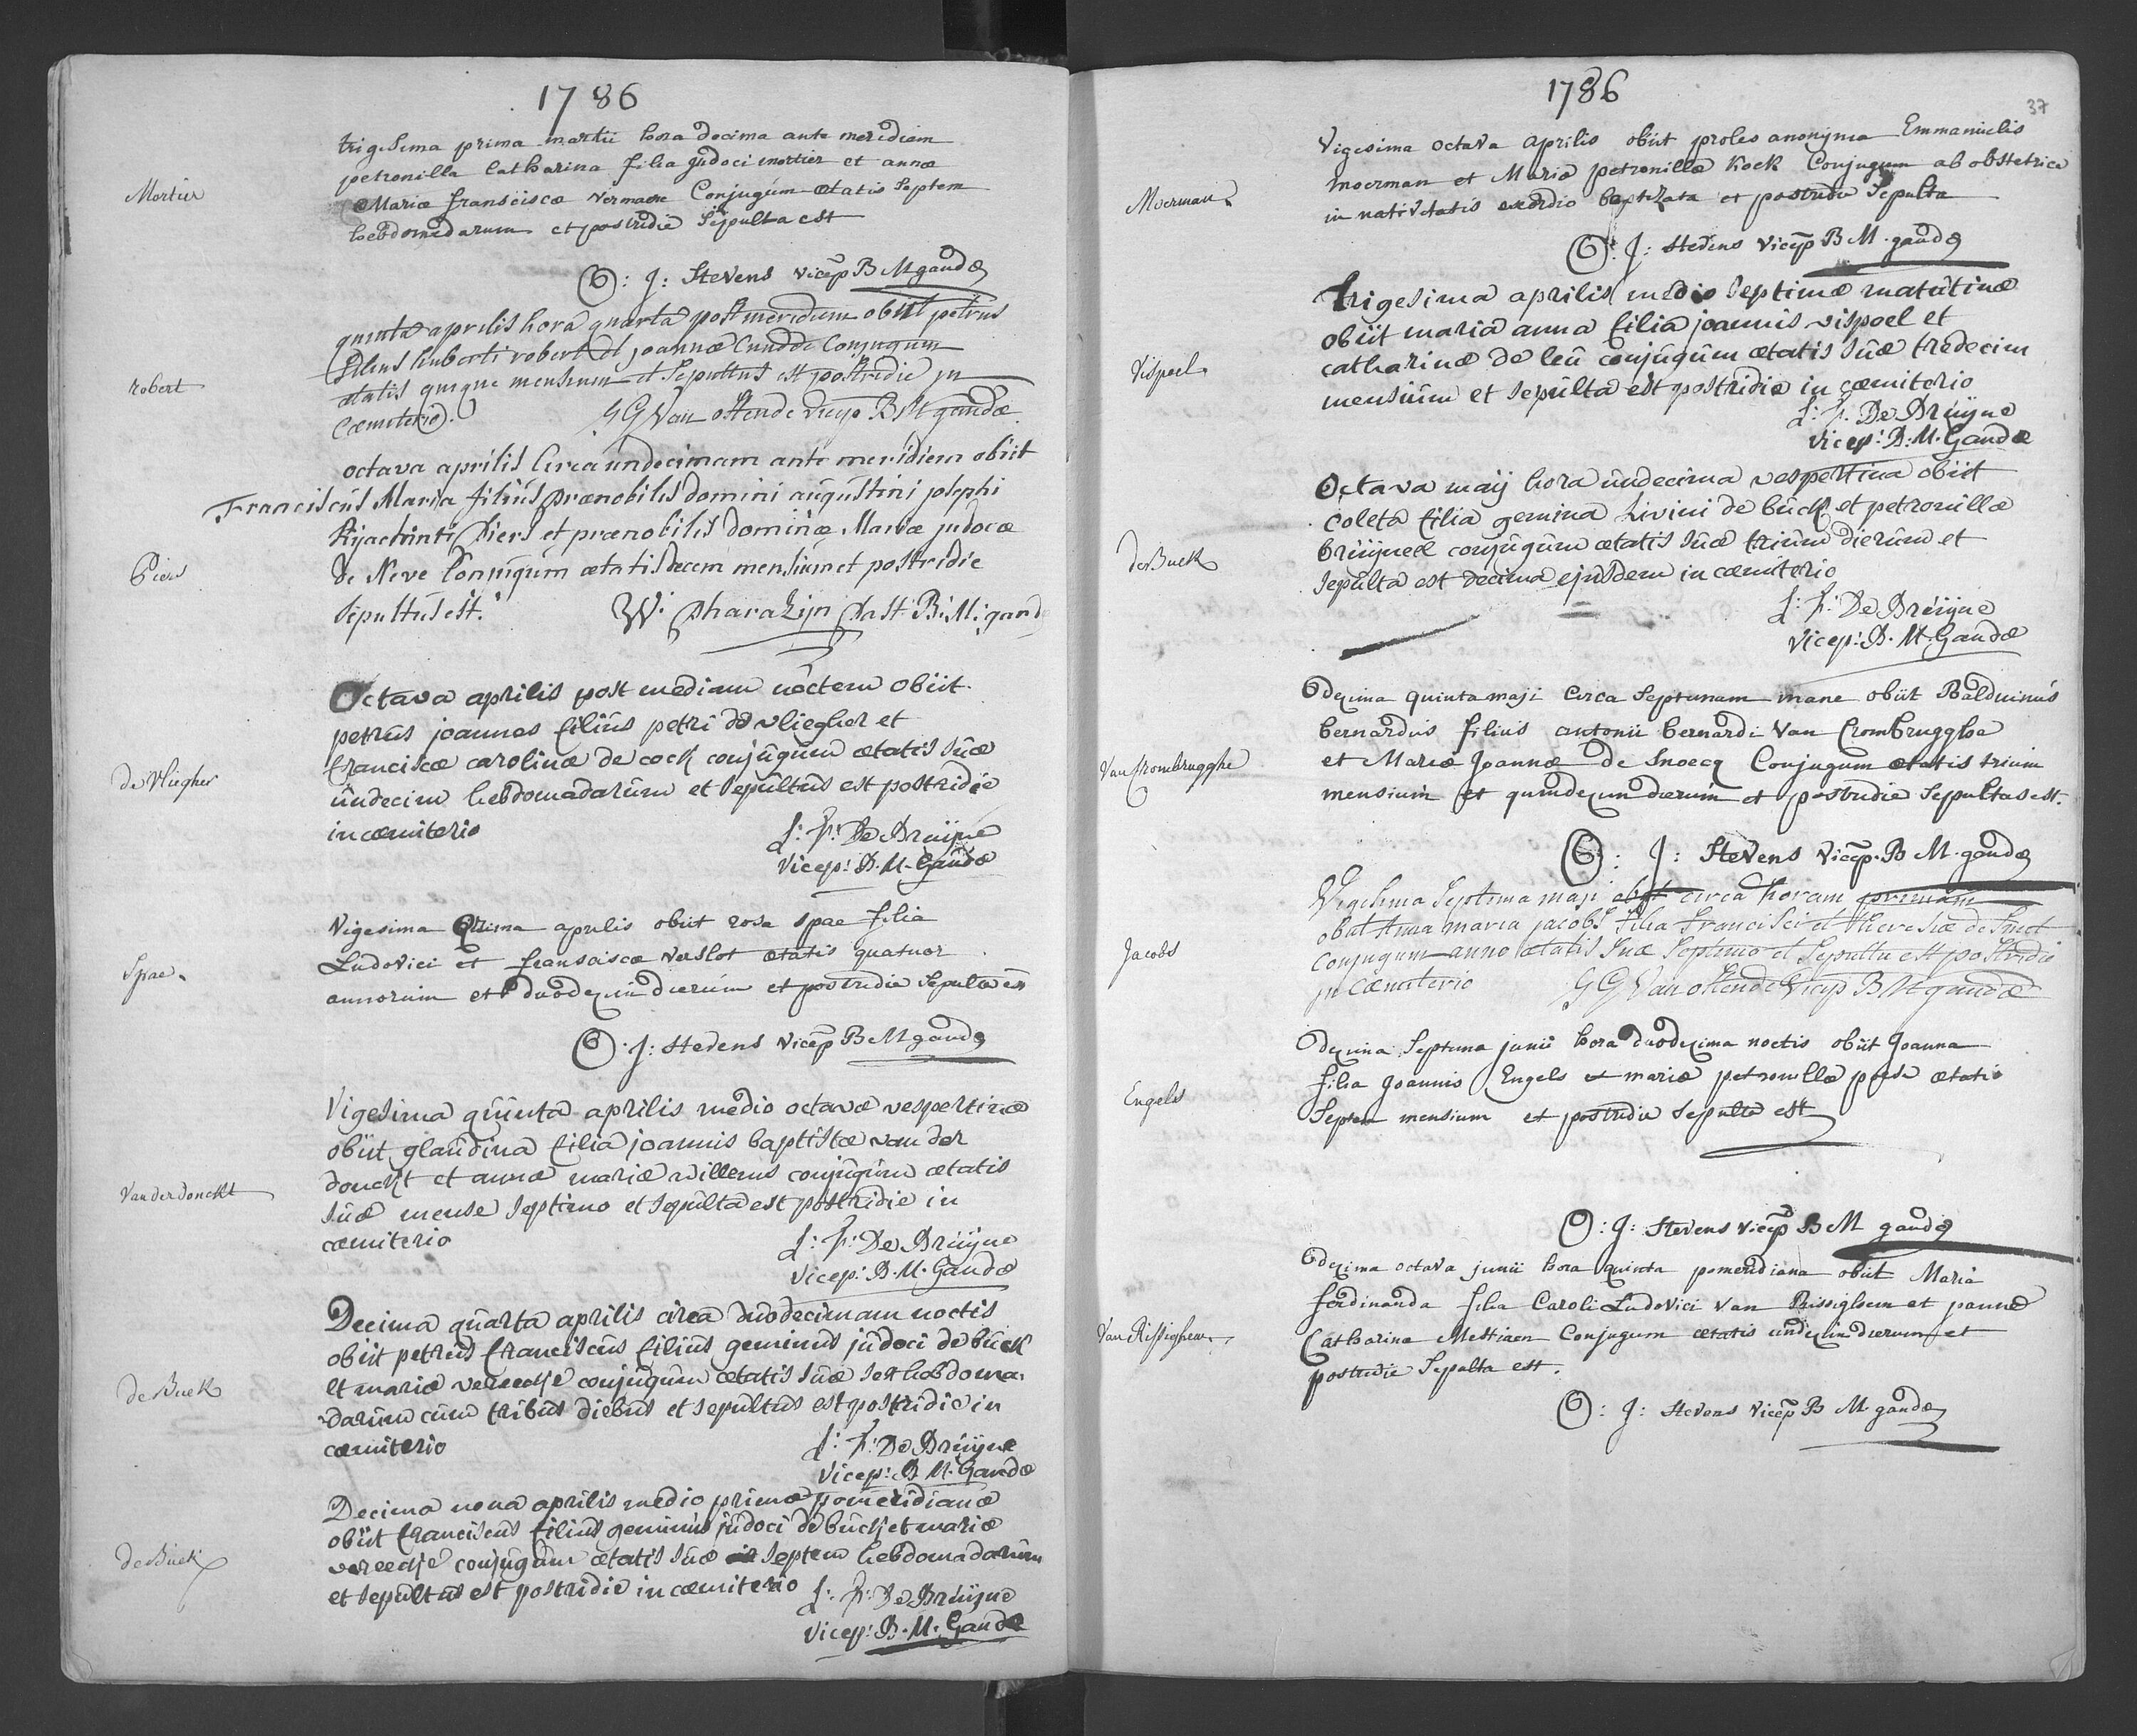 1786
Mortier
trigesima prima martii hora decima ante meridiem
petronilla Catharina filia judoci mortier et annæ
Mariæ franscisca vermaere Conjugum ætatis septem
hebdomadarum et postridie sepulta est
J: Stevens vicep B M gandæ
robert
quinta aprilis hora quarta post meridiem obiit petrus
filius huberti robert et joannæ Conjugum
ætatis quinque mensium et sepultus est postridie in
Cæmiterio.
G G Van ostende vicep B M gandæ
octava aprilis circa undecimam ante meridiem obiit
Franciscus Maria filius prænobilis domini augustini josephi
Hijacinti Piers et prænobilis dominæ Mariæ judocæ
Piers
de Neve Conjugum ætatis decem mensium et postridie
sepultus est.
W: Pharazijn Past: B: M: gand
Octava aprilis post mediam noctem obiit
petrus joannes filius petri de vliegher et
franciscæ carolinæ de cock conjugum ætatis suæ
de Vliegher
undecim hebdomadarum et sepultus est postridie
in cæmiterio
J: F: De Bruijne
Vicep: B. M. Gandæ
Vigesima prima aprilis obiit rosa spae filia
Spae
Ludovici et fransciscæ verslot ætatis quatuor
annorum et duodecim dierum et postridie sepulta est
J: Stevens vicep B M gandæ
Vigesima quinta aprilis medio octavæ vespertinæ
obiit glaudina filia joannis baptistæ van der
donckt et annæ mariæ willems conjugum ætatis
Van der donckt
suæ mense septimo et sepulta est postridie in
cæmiterio
J: F: De Bruijne
Vicep: B. M. Gandæ
Decima quarta aprilis circa duodecimam noctis
obiit petrus franciscus filius geminus judoci de buck
de Buck
et mariæ vereedje conjugum ætatis suæ sex hebdoma-
darum cum tribus diebus et sepultus est postridie in
cæmiterio
J: F: De Bruijne
Vicep: B M. Gandæ
Decima nona aprilis medio primæ pomeridianæ
obiit franciscus filius geminus judoci de buck et mariæ
de Buck
vereedje conjugum ætatis suæ septem hebdomadarum
et sepultus est postridie in cæmiterio
J: F: De Bruijne
Vicep: B. M. Gandæ
1786
37
Vigesima octava aprilis obiit proles anonyma Emmanuelis
Moerman
moerman et Mariæ petronillæ Kock Conjugum ab obstetrice
in nativitatis exordio baptizata et postridie sepulta
J: Stevens vicep B M. gandæ
trigesima aprilis medio septimæ matutinæ
obiit maria anna filia joannis vispoel et
Vispoel
catharinæ de leu conjugum ætatis suæ tredecim
mensium et sepulta est postridie in cæmiterio
J: F. De Bruijne
Vicep: B: M. Gandæ
Octava maij hora undecima vespertina obiit
coleta filia gemina Livini de buck et petronillæ
de Buck
bruijneel conjugum ætatis suæ trium dierum et
sepulta est decima ejusdem in cæmiterio
J: F: De Bruijne
Vicep: B. M. Gandæ
Decima quinta maji circa septimam mane obiit Balduinus
bernardus filius antonii bernardi Van Crombrugghe
Van Crombrugghe
et Mariæ Joannæ De Snoecq Conjugum ætatis trium
mensium et quindecim dierum et postridie sepultus est.
J: Stevens vicep. B M. gandæ
Vigesima septima maji obiit circa horam primam
obiit Anna maria jacobs filia Francisci et theresiæ de Smet
Jacobs
conjugum anno ætatis suæ septimo et sepulta est postridie
in Cæmiterio
G G Van ostende vicep B M gandæ
Decima septima junii hora duodecima noctis obiit Joanna
Engels
filia Joannis Engels et mariæ petronillæ ætatis
septem mensium et postridie sepulta est
J: Stevens vicep B M gandæ
Decima octava junii hora quinta pomeridiana obiit Maria
ferdinanda filia Caroli Ludovici Van Rissighem et joannæ
Van Rissighem
Catharina Mestiaen Conjugum ætatis undecim dierum et
postridie sepulta est.
J: Stevens vicep B M gandæ